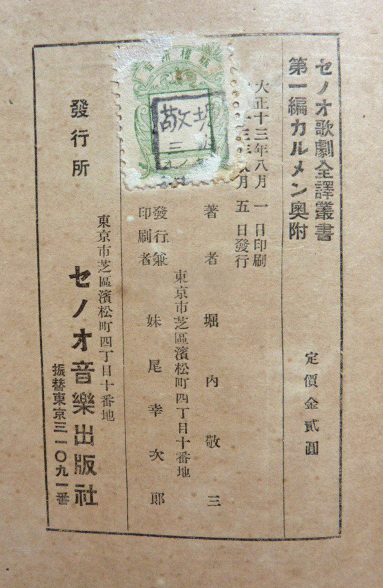 セノオ歌劇全譯叢書
第一編カルメン奧附
定價金貳圓
大正十三年八月一日印刷
五日發行
著者 堀內敬三
東京市芝區濱松町四丁目十番地
發行兼
印刷者 妹尾幸次郞
東京市芝區濱松町四丁目十番地
發行所 セノオ音樂出版社
振替東京三一〇九一番
堀
敬三